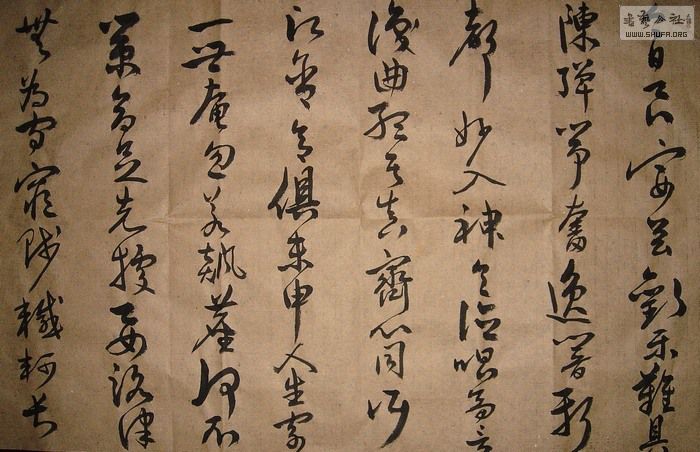 今日良宴會歡樂難具
陳彈箏奮逸響新
聲妙入神令德唱高言
識曲聽其真齊心同所
願含意俱未申人生寄
一世奄忽若飆塵何不
策高足先據要路津
無為守窮賤轗軻長
書藝公社
WWW.SHUFA.ORG